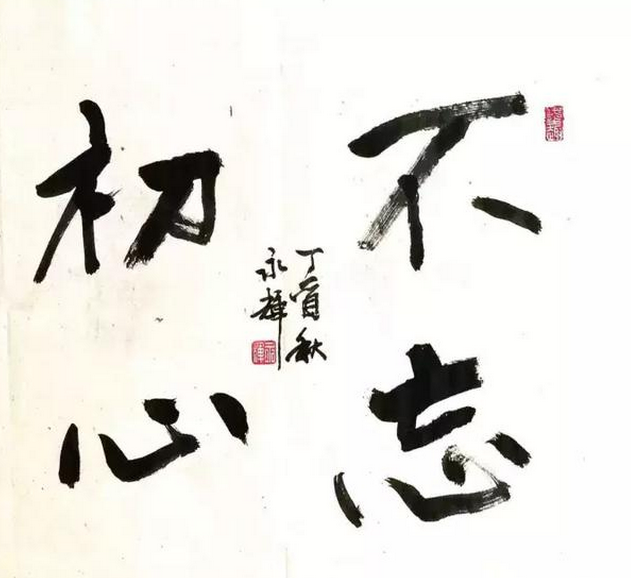 不忘
初心
丁酉秋
永輝